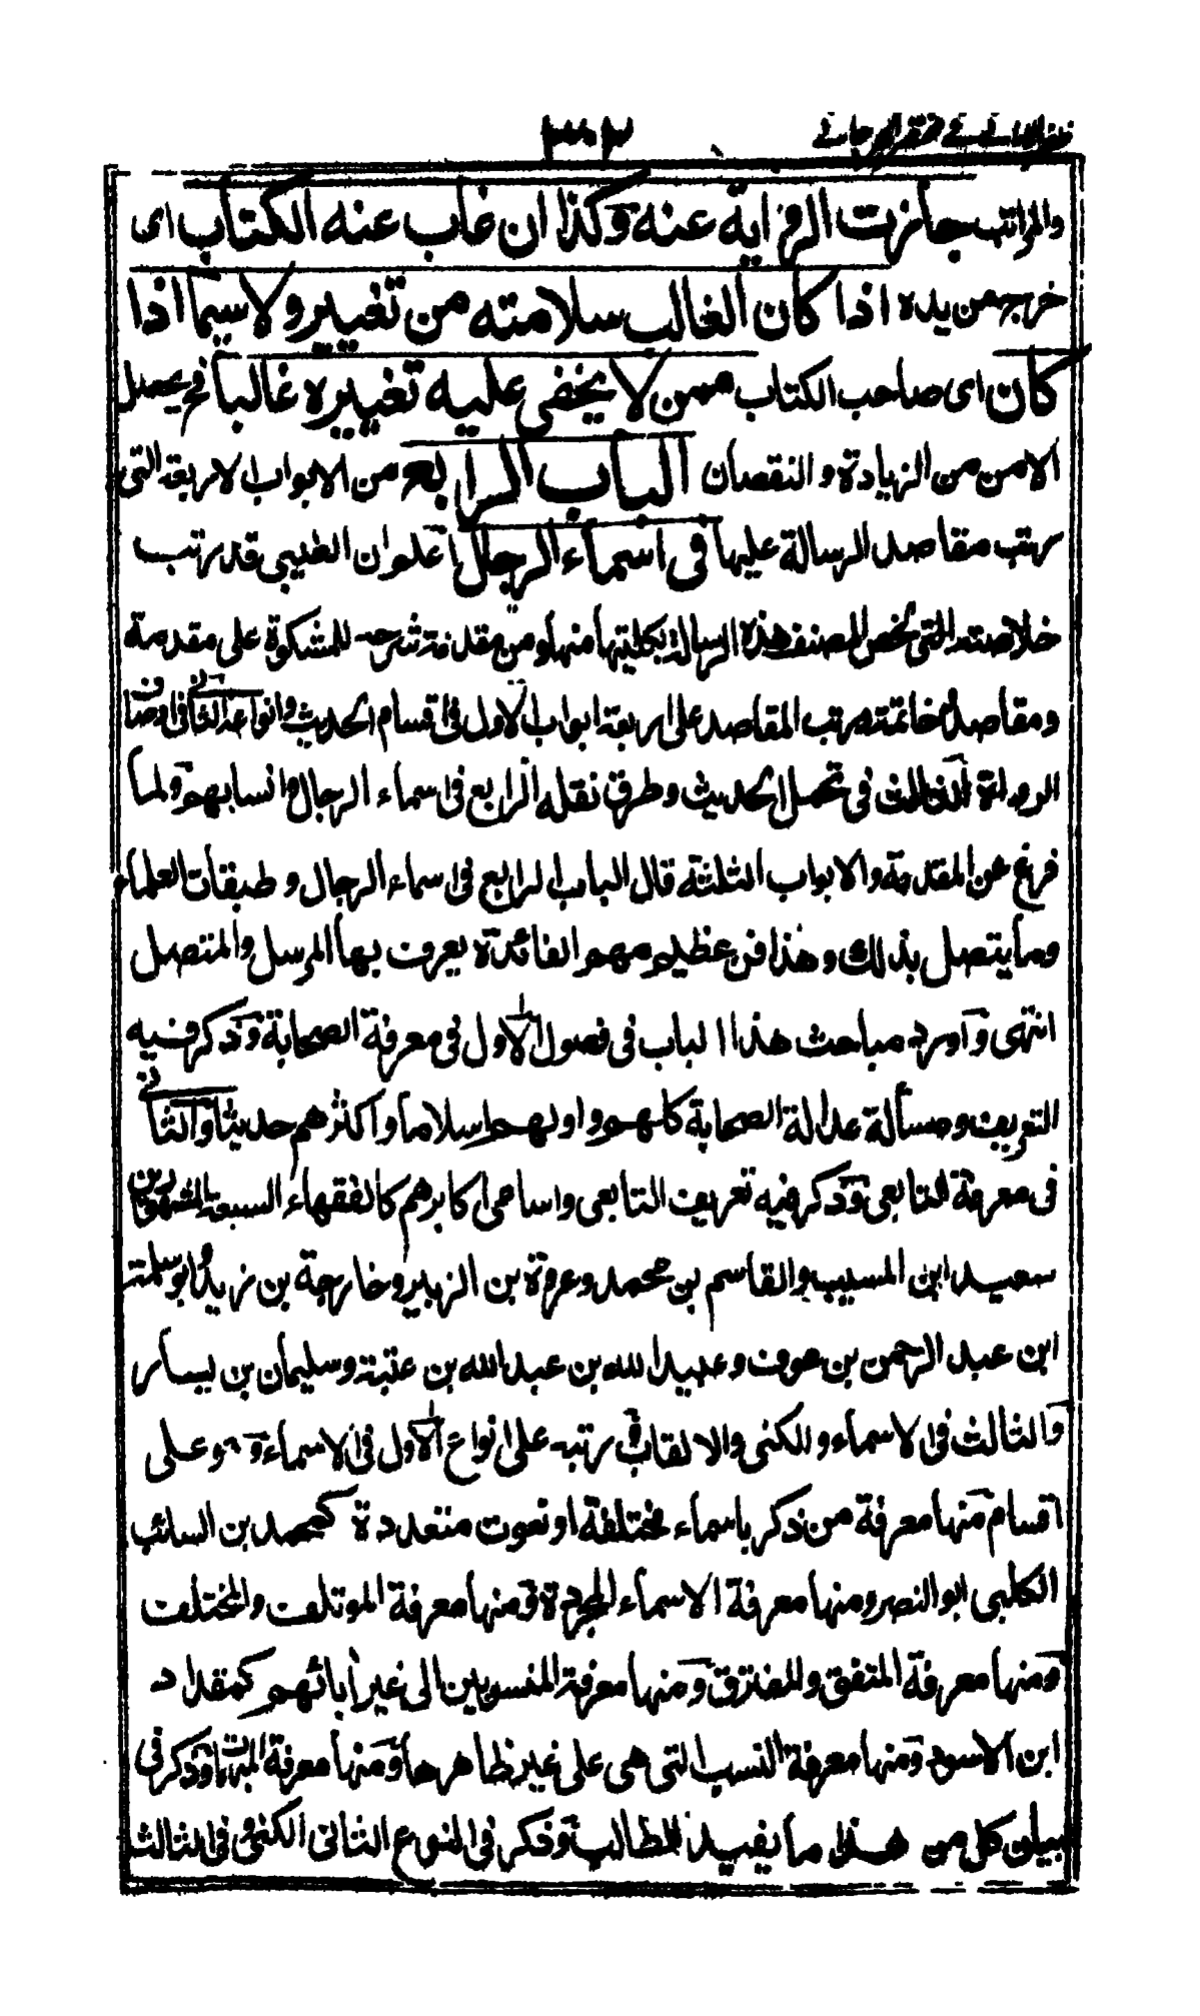 ظفر الامانی فی مختصر الجرجانی
٣٠٢
والمراتب جازت الروایة عنه وکذا ان غاب عنه الکتاب ای
خرج من یده اذا کان الغالب سلامته من تغییر ولا سیما اذا
کان ای صاحب الکتاب ممن لا یخفی علیه تغییره غالبا فح یحصل
الامن من الزیادة والنقصان الباب الرابع من الابواب الاربعة التی
رتب مقاصد الرسالة علیها فی اسماء الرجال اعلم ان الطیبی قد رتب
خلاصته التی لخص المصنف هذه الرسالة بکلیتها منها ومن مقدمة شرحه للمشکوة علی مقدمة
ومقاصد وخاتمة ورتب المقاصد علی اربعة ابواب الاول فی اقسام الحدیث وانواعه الثانی فی اوصاف
الرواة الثالث فی تحمل الحدیث وطرق نقله الرابع فی اسماء الرجال وانسابهم ولما
فرغ عن المقدمة والابواب الثلثة قال الباب الرابع فی اسماء الرجال وطبقات العلماء
وما یتصل بذلک وهذا فن عظیم مهم الفائدة یعرف بها المرسل والمتصل
انتهی واورد مباحث هذا الباب فی فصول الاول فی معرفة الصحابة وذکر فیه
التعریف ومسألة عدالة الصحابة کلهم واولهم اسلاما واکثرهم حدیثا والثانی
فی معرفة التابعی وذکر فیه تعریف التابعی واسامی اکابرهم کالفقهاء السبعة المشهورین
سعید ابن المسیب والقاسم بن محمد وعروة بن الزبیر وخارجة بن زید وابو سلمة
ابن عبد الرحمن بن عوف وعبید الله بن عبد الله بن عتبة وسلیمان بن یسار
والثالث فی الاسماء والکنی والالقاب ورتبه علی انواع الاول فی الاسماء وهو علی
اقسام منها معرفة من ذکر باسماء مختلفة او نعوت متعددة کمحمد بن السائب
الکلبی ابو النصر ومنها معرفة الاسماء المجردة ومنها معرفة الموتلف والمختلف
ومنها معرفة المتفق والمفترق ومنها معرفة المنسوبین الی غیر ابائهم کمقداد
ابن الاسود ومنها معرفة النسب التی هی علی غیر ظاهرها ومنها معرفة المبهمات وذکر فی
بیان کل من هذا ما یفید للطالب وذکر فی النوع الثانی الکنی وفی الثالث